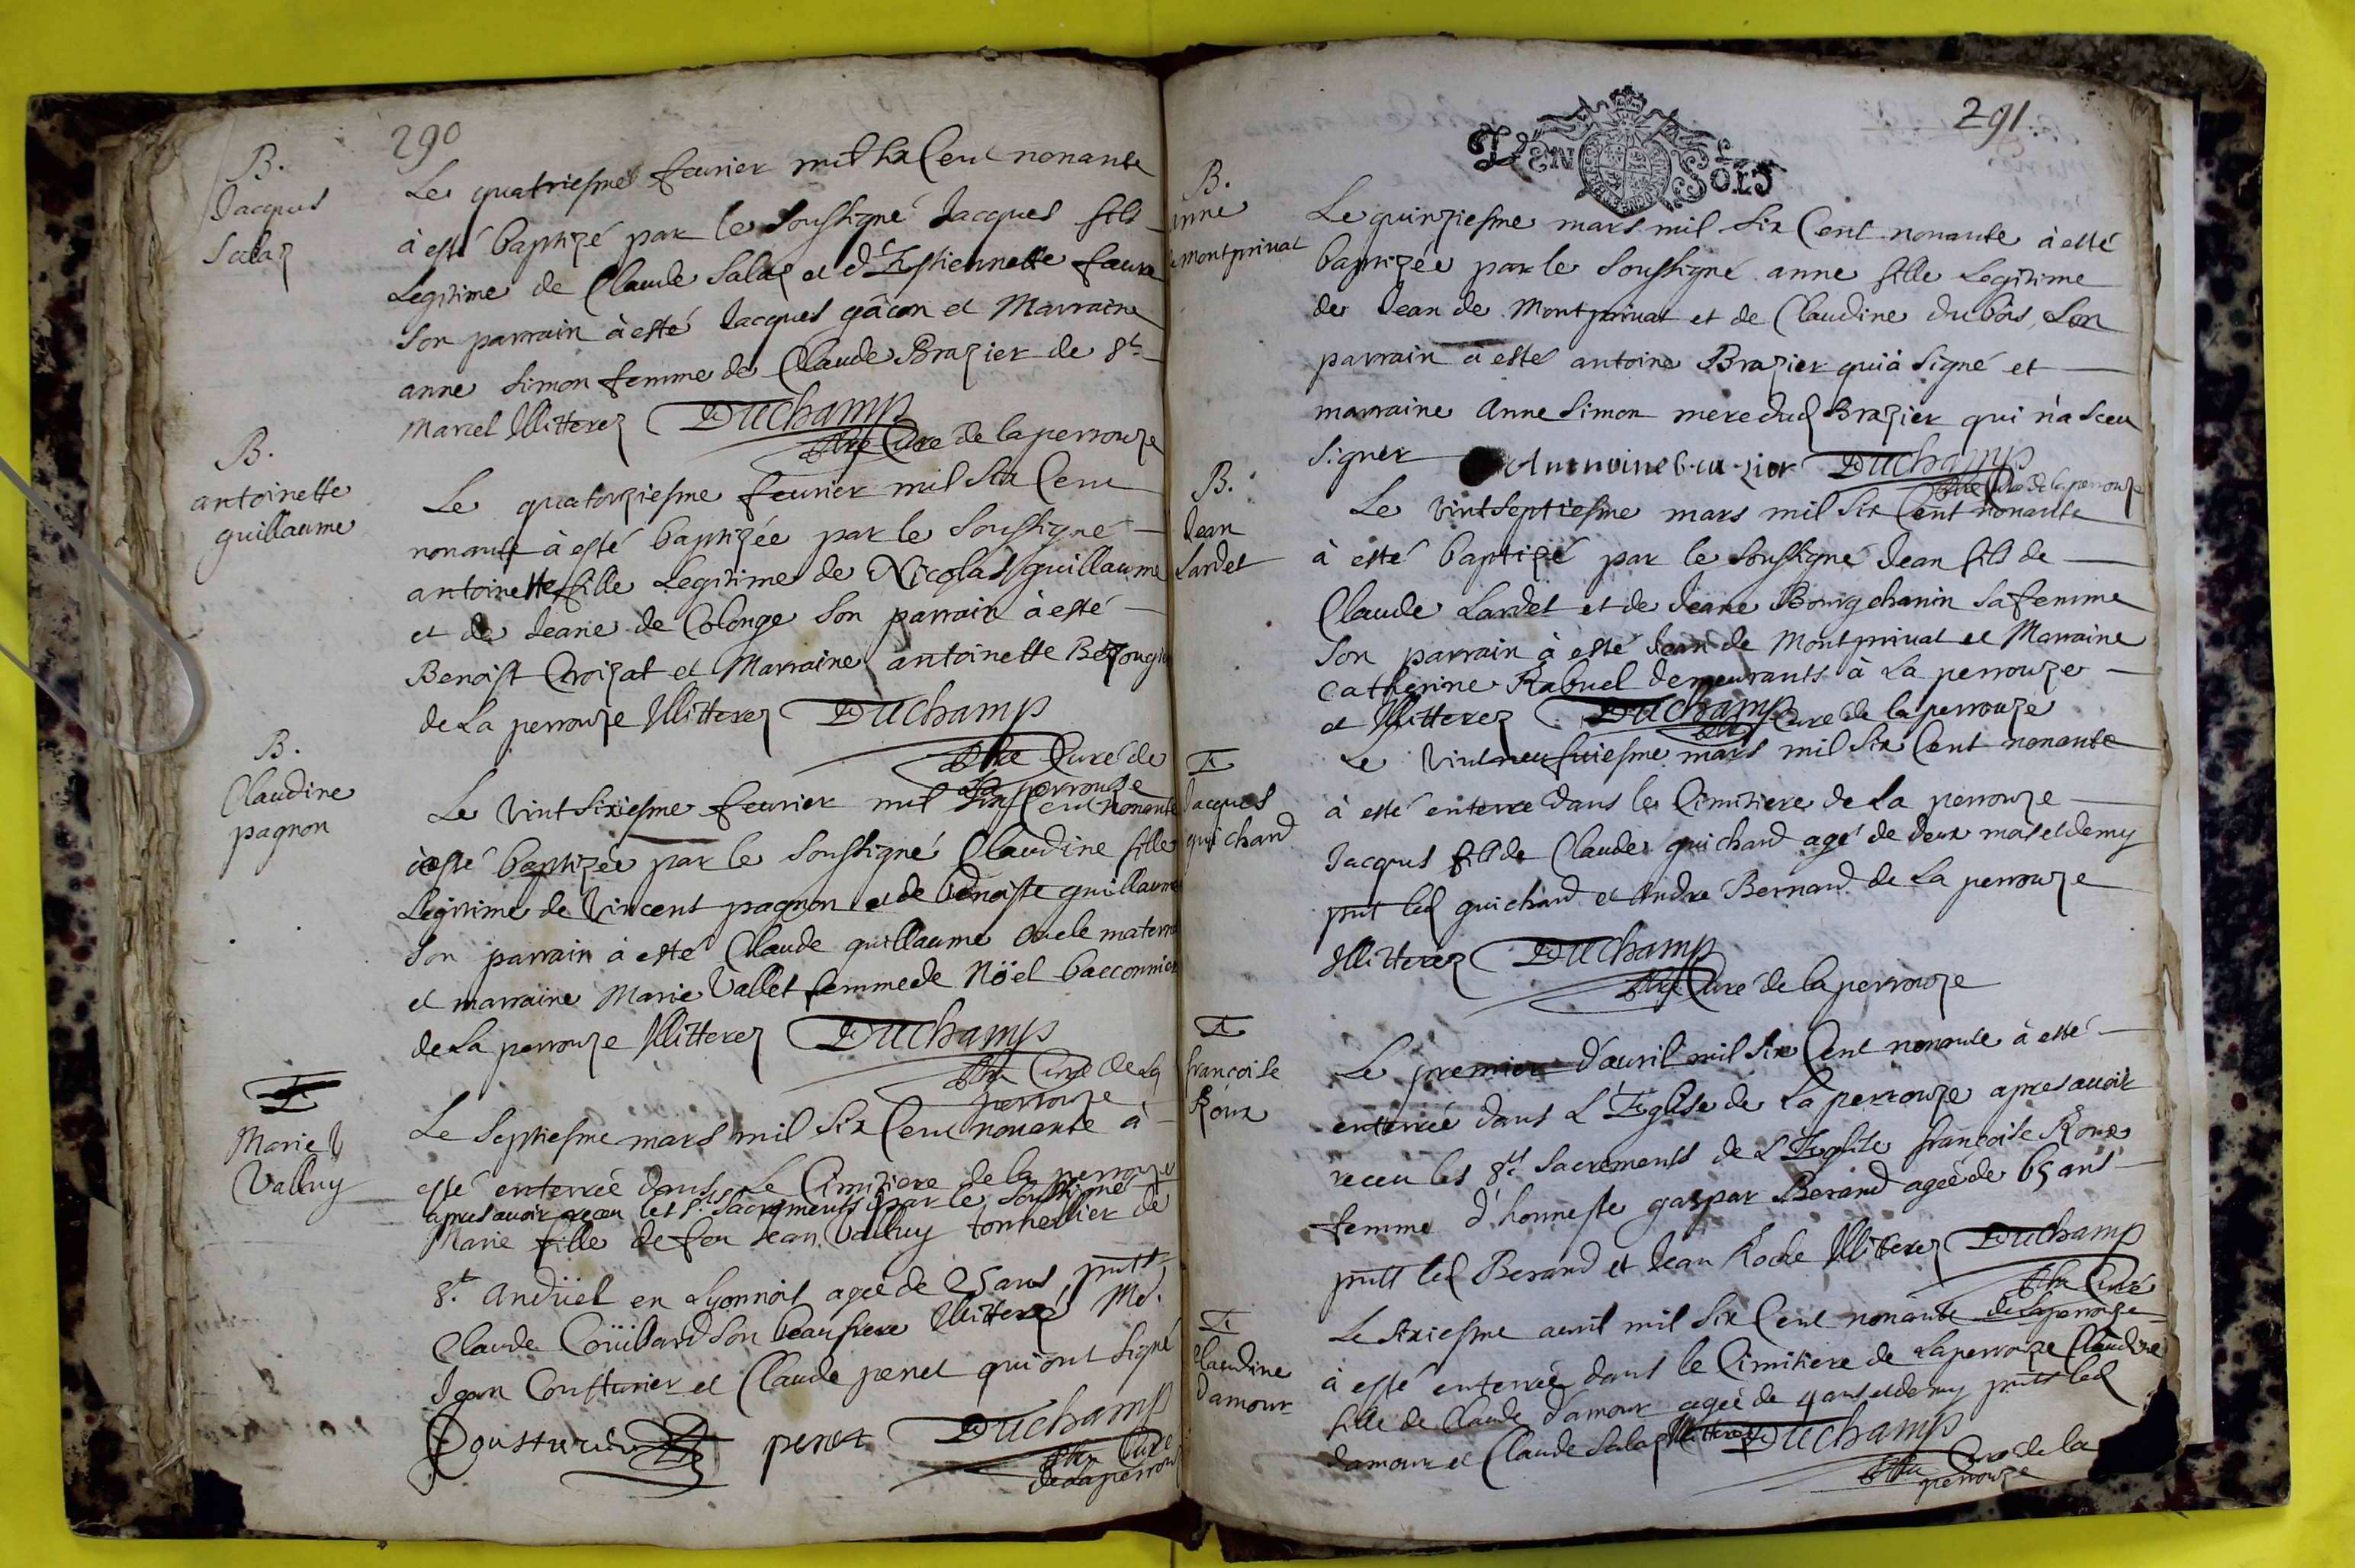 290
B.
Jacques
Salaz
Le quatriesme feurier mil six Cent nonante
à esté baptizé par le soussigné Jacques fils
Legitime de Claude Salaz et d'Estiennette faure
son parrain à esté Jacques gâcon et Marraine
anne simon femme de Claude Brazier de St
Marcel Illitterez Duchamp
Ptre Cure de la perrouze
B.
antoinette
guillaume
Le quatorziesme feurier mil six Cent
nonante à esté baptizée par le soussigné
antoinette fille Legitime de Nicolas guillaume
et de Jeane de Colonge son parrain à esté
Benoist Croizat et Marraine antoinette
de La perrouze Illitterez Duchamp
Ptre Curé de
La perrouze
B.
Claudine
pagnon
Le vint sixiesme feurier mil six Cent nonante
à esté baptizée par le soussigné Claudine fille
Legitime de Vincent pagnon et de benoiste guillaume
son parrain à esté Claude guillaume oncle matern
et marraine Marie Vallet femme de Nöel bacconnier
de La perrouze Illitterez Duchamp
Ptre Curé de La
perrouze
E
Marie
Valluy
Le septiesme mars mil six Cent nonante à
esté enterrée dans Le Cimitiere de la perrouze
apres auoir receu les Sts Sacrements par le soussigné
Marie fille de feu Jean Valluy tonnellier de
St Andüel en Lyonnois agée de 25 ans pntz
Claude Coüibard son beaufrere Illitteré Me.
Jean Cousturier et Claude peret qui ont signé
Cousturier peret Duchamp
Ptre Cure
de La perrouz
291
DEN SOLS
B.
anne
de montpriuat
Le quinziesme mars mil six Cent nonante à esté
baptizée par le soussigné anne fille Legitime
de Jean de Montpriuat et de Claudine du bois, son
parrain à esté antoine Brazier qui à signé et
marraine Anne Simon mere dud Brazier qui n'a sceu
signer Antnoine brazier Duchamp
Ptre Cure de la perrouze
B.
Jean
Lardet
Le vint septiesme mars mil six Cent nonante
à esté baptizé par le soussigné Jean fils de
Claude Lardet et de Jeane Bourgchanin sa femme
son parrain à esté Jean de Montpriuat et Marraine
Catherine Rabuel demeurants à La perrouze
et Illitterez Duchamp Ptre Curé de la perrouze
E
Jacques
guichard
Le vint neufuiesme mars mil six Cent nonante
à esté enterre dans le Cimitiere de La perrouze
Jacques fils de Claude guichard agé de deux mois et demy
pnt led guichard et Andre Bernard de La perrouze
Illitterez Duchamp
Ptre Curé de la perrouze
E
françoise
Roux
Le premier d'auril mil six Cent nonante à esté
enterrée dans L'Eglise de La perrouze apres auoir
receu les Sts Sacrements de L'Eglise françoise Roux
femme d'honneste gaspar Berard agée de 65 ans
pntz led Berard et Jean Roche Illiterez Duchamp
Ptre Curé
de la perrouze
E
Claudine
damour
Le sixiesme auril mil six Cent nonante
à esté enterrée dans le Cimitiere de La perrouze Claudine
fille de Claude d'amour agée de 4 ans et demy pntz led
damour et Claude Salaz Illitterez Duchamp
Ptre Cure de la
perrouze